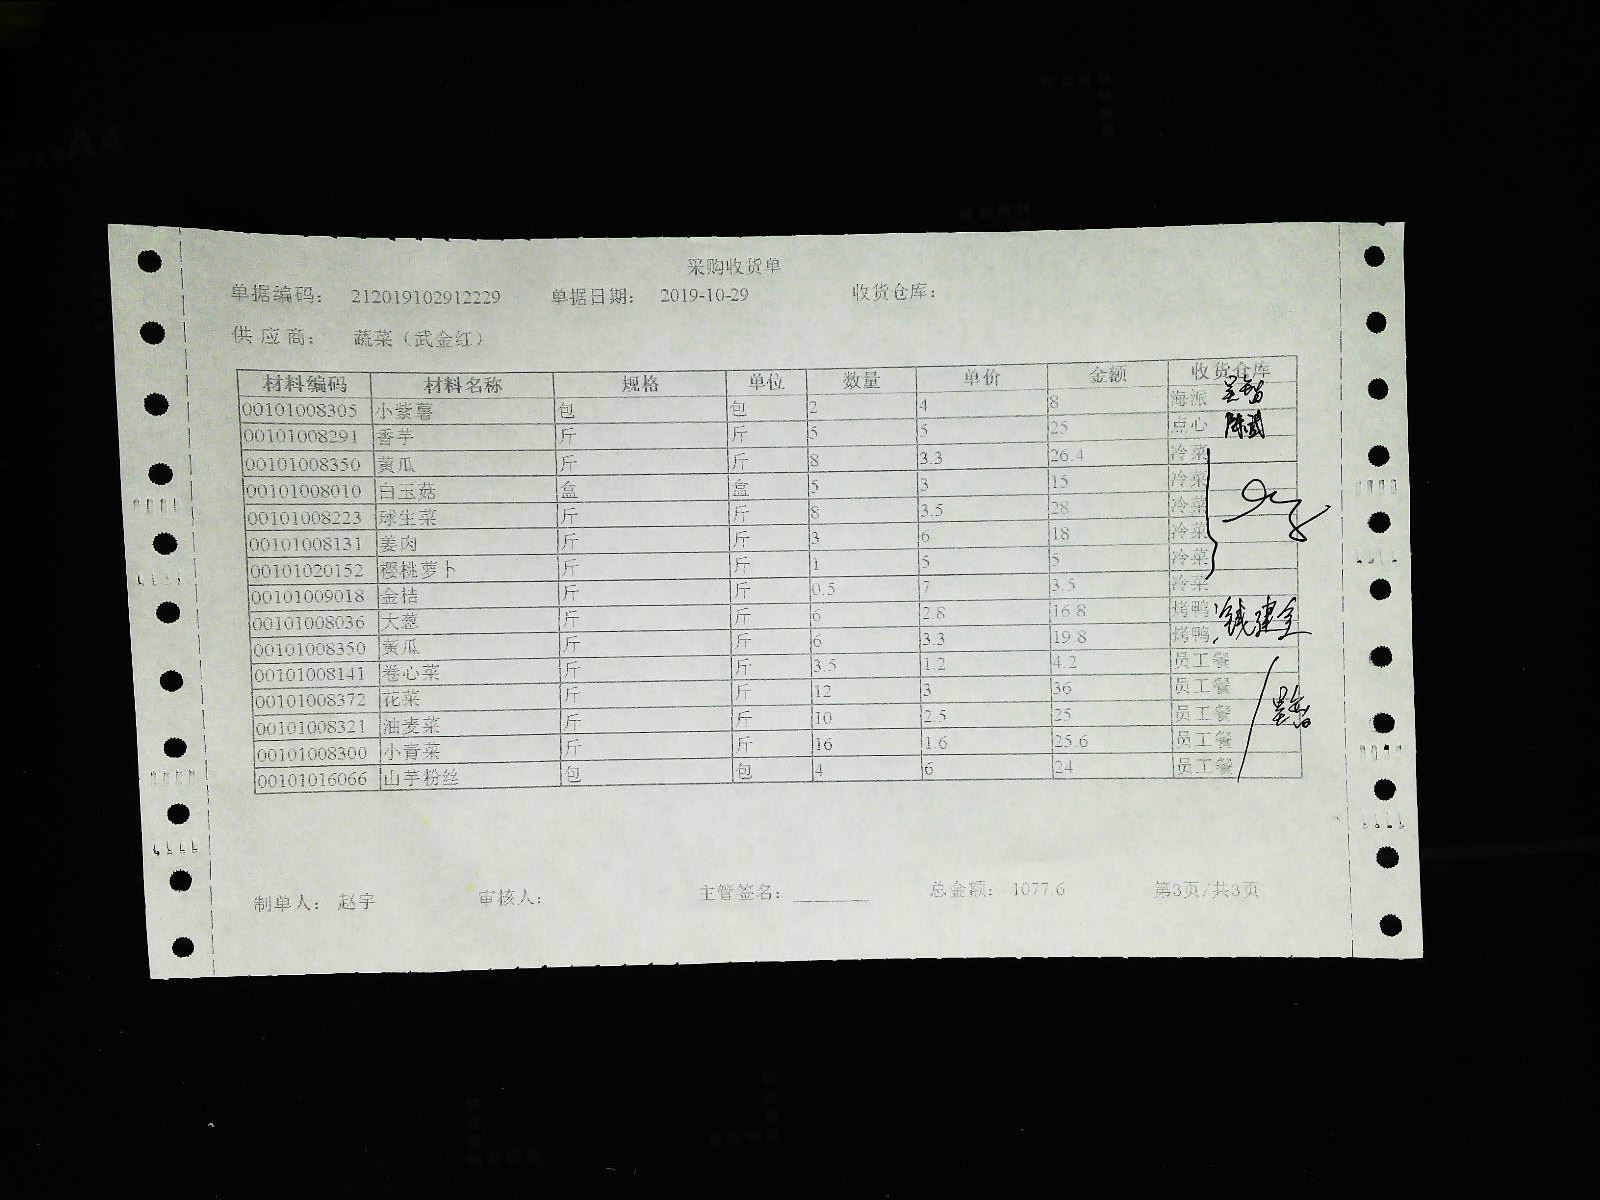 采购收货单
单据编码： 212019102912229 单据日期： 2019-10-29 收货仓库：
供 应 商： 蔬菜（武金红）
材料编码 材料名称 规格 单位 数量 单价 金额 收货仓库
00101008305 小紫薯 包 包 2 4 8 海派
00101008291 香芋 斤 斤 5 5 25 点心
00101008350 黄瓜 斤 斤 8 3.3 26.4 冷菜
00101008010 白玉菇 盒 盒 5 3 15 冷菜
00101008223 球生菜 斤 斤 8 3.5 28 冷菜
00101008131 姜肉 斤 斤 3 6 18 冷菜
00101020152 樱桃萝卜 斤 斤 1 5 5 冷菜
00101009018 金桔 斤 斤 0.5 7 3.5 冷菜
00101008036 大葱 斤 斤 6 2.8 16.8 烤鸭 钱建全
00101008350 黄瓜 斤 斤 6 3.3 19.8 烤鸭
00101008141 卷心菜 斤 斤 3.5 1.2 4.2 员工餐
00101008372 花菜 斤 斤 12 3 36 员工餐
00101008321 油麦菜 斤 斤 10 2.5 25 员工餐
00101008300 小青菜 斤 斤 16 1.6 25.6 员工餐
00101016066 山芋粉丝 包 包 4 6 24 员工餐
制单人： 赵宇 审核人： 主管签名： 总金额： 1077.6 第3页/共3页